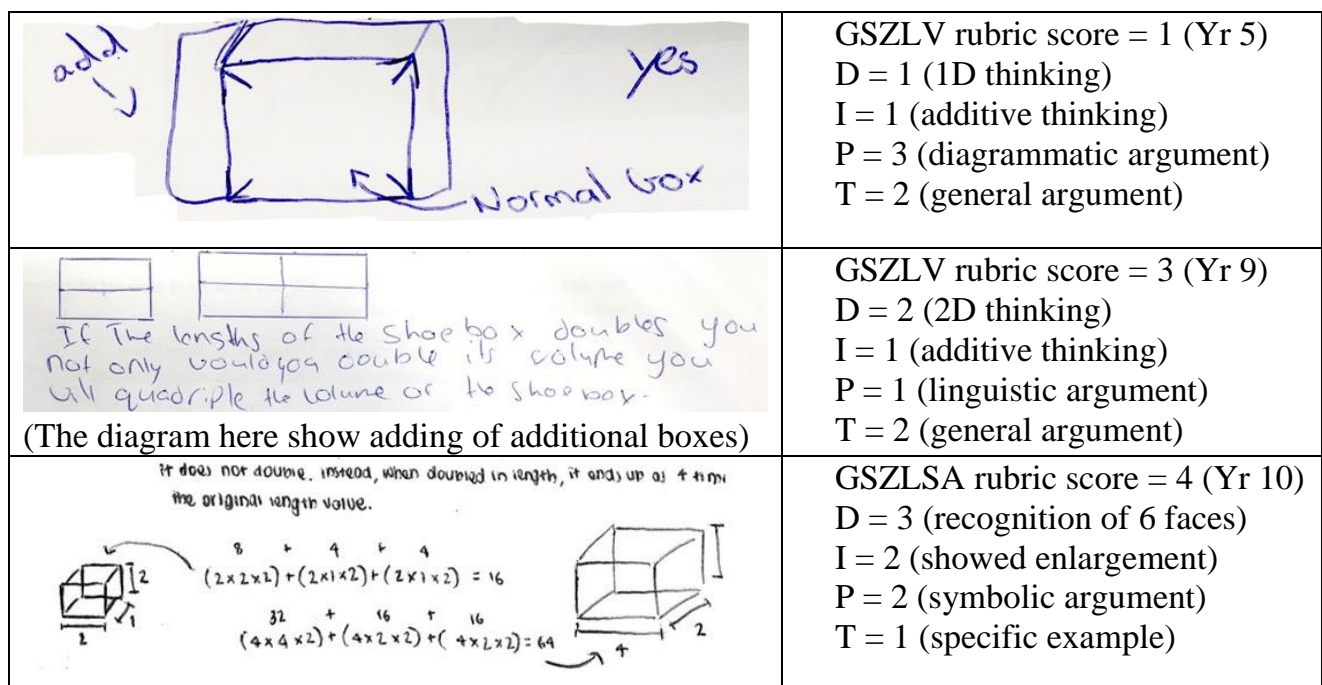 add
yes
Normal box
GSZLV rubric score = 1 (Yr 5)
D = 1 (1D thinking)
I = 1 (additive thinking)
P = 3 (diagrammatic argument)
T = 2 (general argument)
If The lengths of the shoe box doubles you
not only would you double its volume you
will quadriple the volume of the shoebox.
(The diagram here show adding of additional boxes)
GSZLV rubric score = 3 (Yr 9)
D = 2 (2D thinking)
I = 1 (additive thinking)
P = 1 (linguistic argument)
T = 2 (general argument)
it does not double, instead, when doubled in length, it ends up as 4 time
the original length value.
8 + 4 + 4
(2x2x2)+(2x1x2)+(2x1x2) = 16
32 + 16 + 16
(4x4x2)+(4x2x2)+(4x2x2)=64
2
1
2
2
4
GSZLSA rubric score = 4 (Yr 10)
D = 3 (recognition of 6 faces)
I = 2 (showed enlargement)
P = 2 (symbolic argument)
T = 1 (specific example)